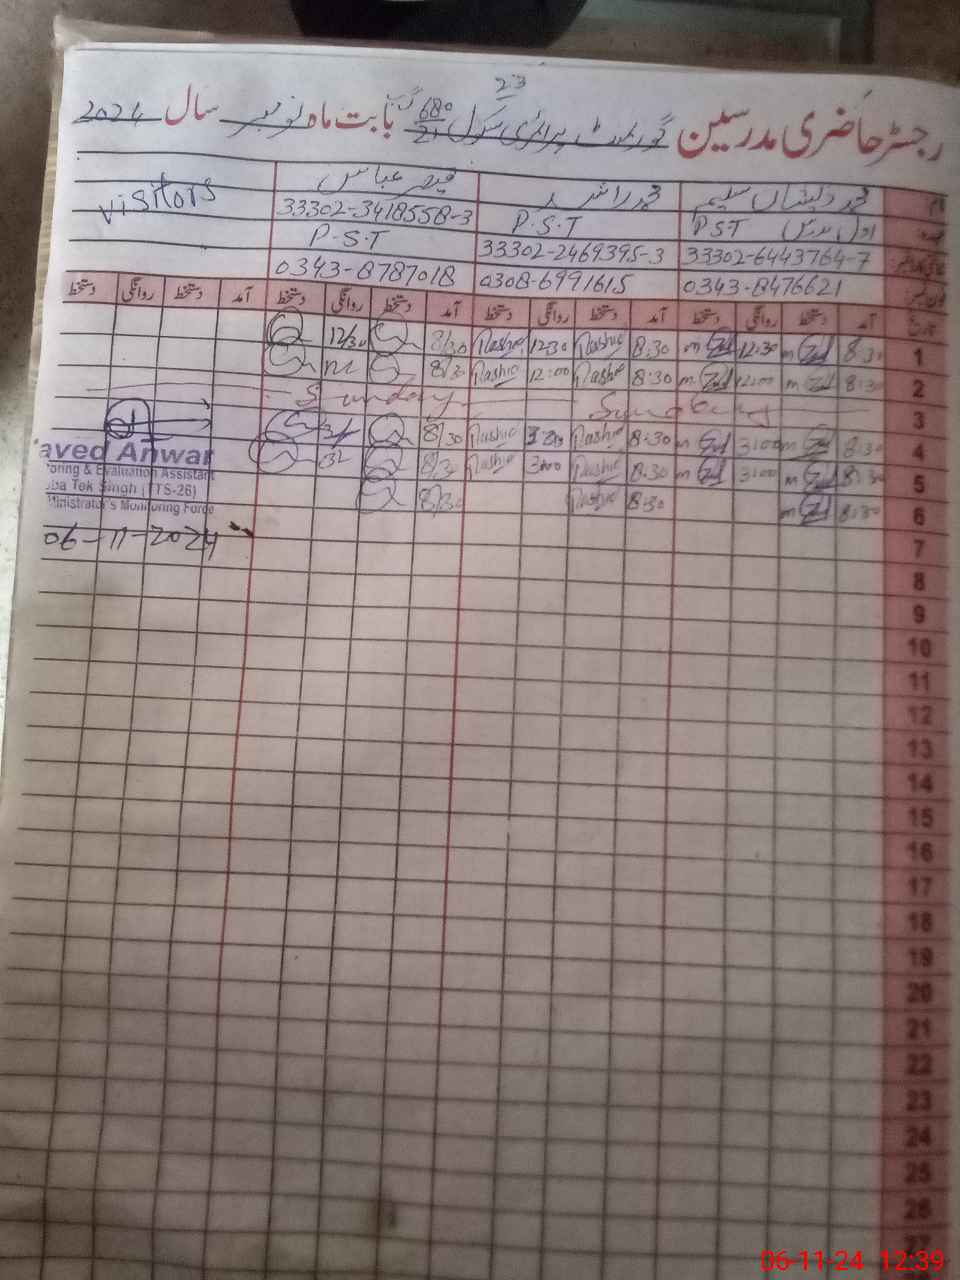 23
رجسٹر حاضری مدرسین گورنمنٹ پرائمری سکول 680/21 گ ب بابت ماہ نومبر سال 2024
نام محمد ذیشان سلیم محمد راشد قیصر عباس visitors
عہدہ اول مدرس PST P.S.T 33302-3418558-3
33302-6443764-7 33302-2469395-3 P.S.T
0343-8476621 0308-6991615 0343-8787018
تاریخ آمد دستخط روانگی دستخط آمد دستخط روانگی دستخط آمد دستخط روانگی دستخط آمد دستخط روانگی دستخط
1 8:30 12:30 8:30 Rashid 12:30 Rashid 8/30 12/30
2 8:30 12:00 8:30 Rashid 12:00 Rashid 8/30
3 Sunday Sunday
4 8:30 3:00 8:30 Rashid 3:00 Rashid 8/30
5 8:30 3:00 8:30 Rashid 3:00 Rashid 8/30
6 8:30 8:30 Rashid 8/30
aved Anwar
toring & Evaluation Assistant
oba Tek Singh (TTS-26)
ministrator's Monitoring Force
06-11-2024
7
8
9
10
11
12
13
14
15
16
17
18
19
20
21
22
23
24
25
26
27
06-11-24 12:39